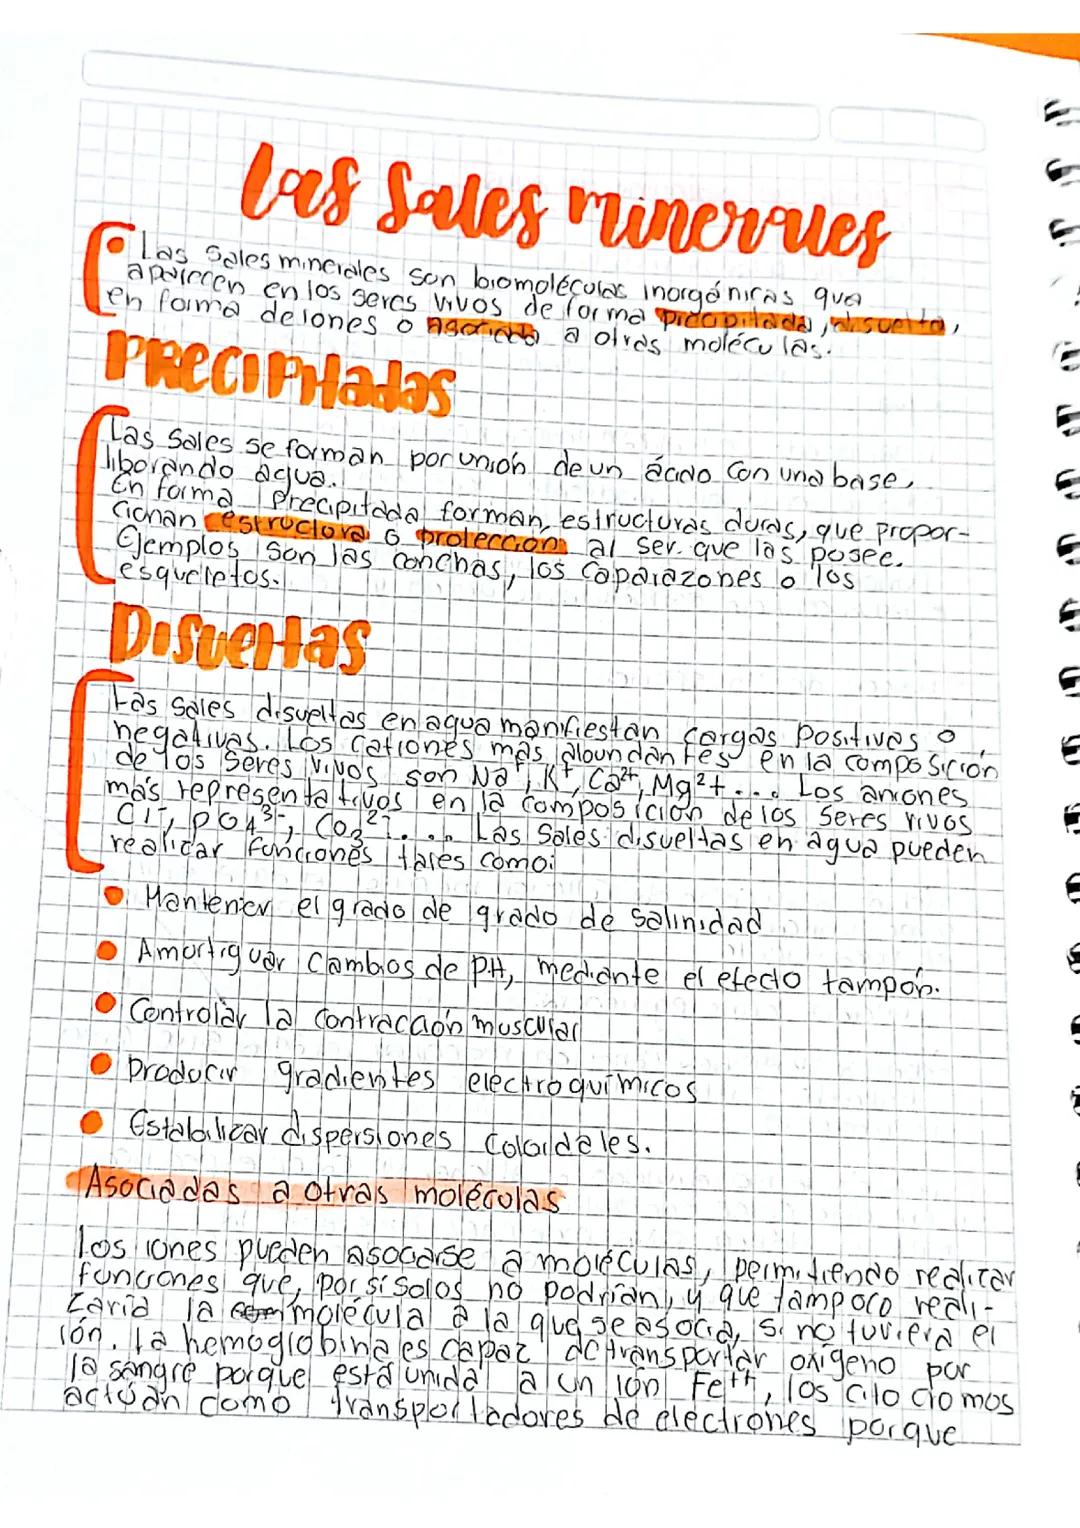 Las Sales minerales
• Las Sales minerales son biomoléculas inorgánicas que
aparecen en los seres vivos de forma precipitada, disuelta,
en forma de iones o asociada a otras moléculas.
PRECIPitadas
Las Sales se forman por unión de un ácido con una base,
liberando agua.
En forma precipitada forman estructuras duras, que propor-
cionan estructura o protección al ser que las posee.
Ejemplos son las conchas, los caparazones o los
esqueletos.
DisueItas
Las Sales disueltas en agua manifiestan cargas positivas o
negativas. Los cationes más abundantes en la composición
de los Seres vivos son Na⁺, K⁺, Ca²⁺, Mg²+... Los aniones
más representativos en la composición de los Seres vivos
Cl⁻, PO4³⁻, CO3²⁻... Las Sales disueltas en agua pueden
realizar funciones tales como:
• Mantener el grado de grado de salinidad
• Amortiguar cambios de PH, mediante el efecto tampón.
• Controlar la contracción muscular
• Producir gradientes electroquímicos
• Estabilizar dispersiones coloidales.
Asociadas a otras moléculas
Los iones pueden asociarse a moléculas, permitiendo realizar
funciones que, por sí solos no podrían, y que tampoco reali-
zaría la molécula a la que se asocia, si no tuviera el
ión. La hemoglobina es capaz de transportar oxígeno por
la sangre porque está unida a un ión Fe⁺⁺, los cito cro mos
actúan como transportadores de electrones porque